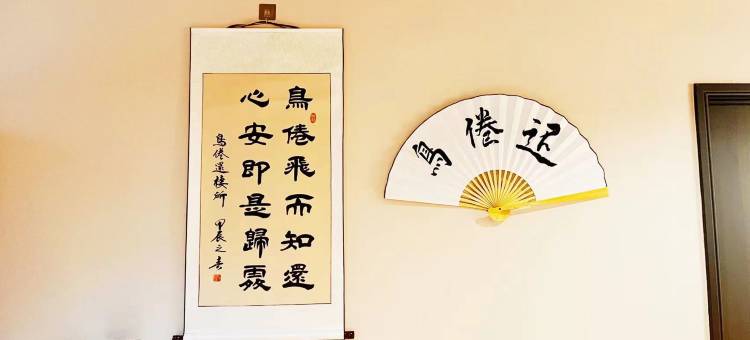 鳥倦飛而知還
心安即是歸處
鳥倦還棲所 甲辰之春
鳥倦还